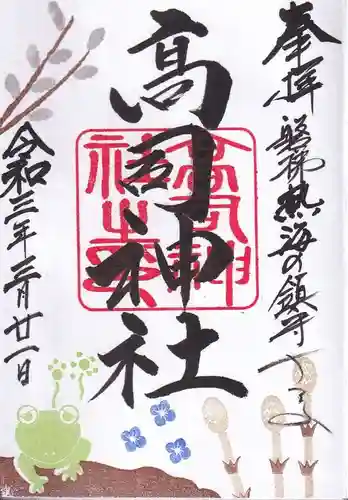 奉拝 磐梯熱海の鎮守
高司神社
高司神社之印
令和三年三月廿一日